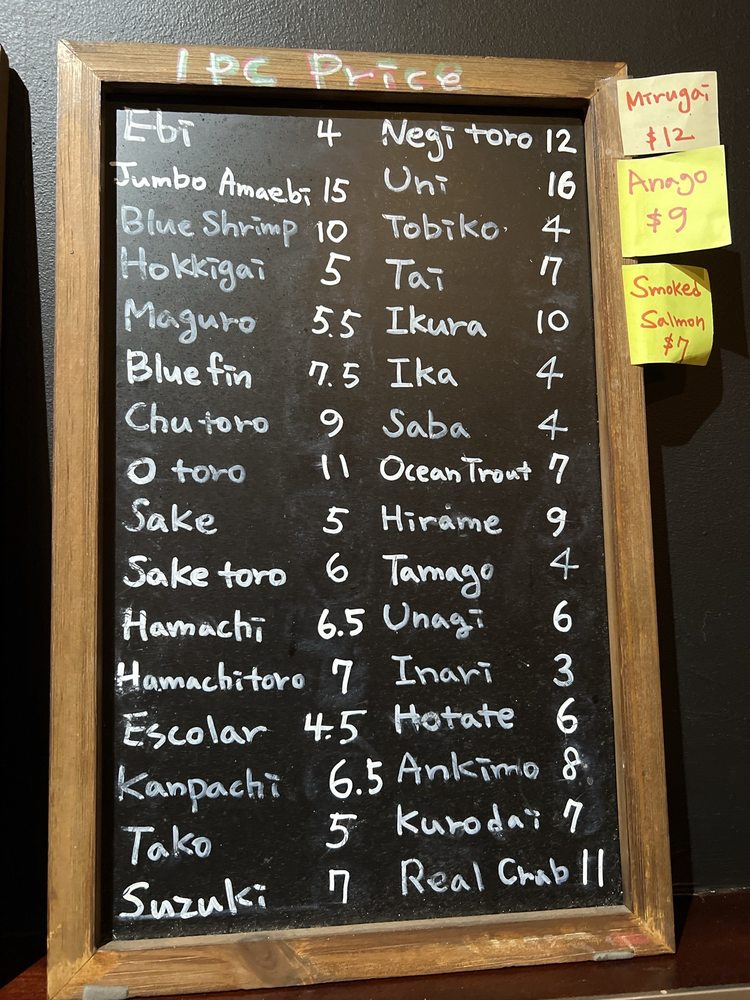 1 PC Price
Ebi 4
Jumbo Amaebi 15
Blue Shrimp 10
Hokkigai 5
Maguro 5.5
Bluefin 7.5
Chutoro 9
O toro 11
Sake 5
Sake toro 6
Hamachi 6.5
Hamachitoro 7
Escolar 4.5
Kanpachi 6.5
Tako 5
Suzuki 7
Negi toro 12
Uni 16
Tobiko 4
Tai 7
Ikura 10
Ika 4
Saba 4
Ocean Trout 7
Hirame 9
Tamago 4
Unagi 6
Inari 3
Hotate 6
Ankimo 8
Kurodai 7
Real Crab 11
Mirugai
$12
Anago
$9
Smoked
Salmon
$7